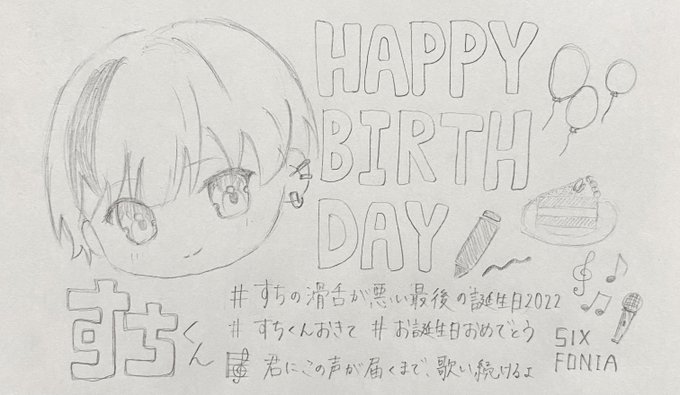 HAPPY
BIRTH
DAY
すちくん
#すちの滑舌が悪い最後の誕生日2022
#すちくんおきて #お誕生日おめでとう
君にこの声が届くまで、歌い続けるよ
SIX
FONIA